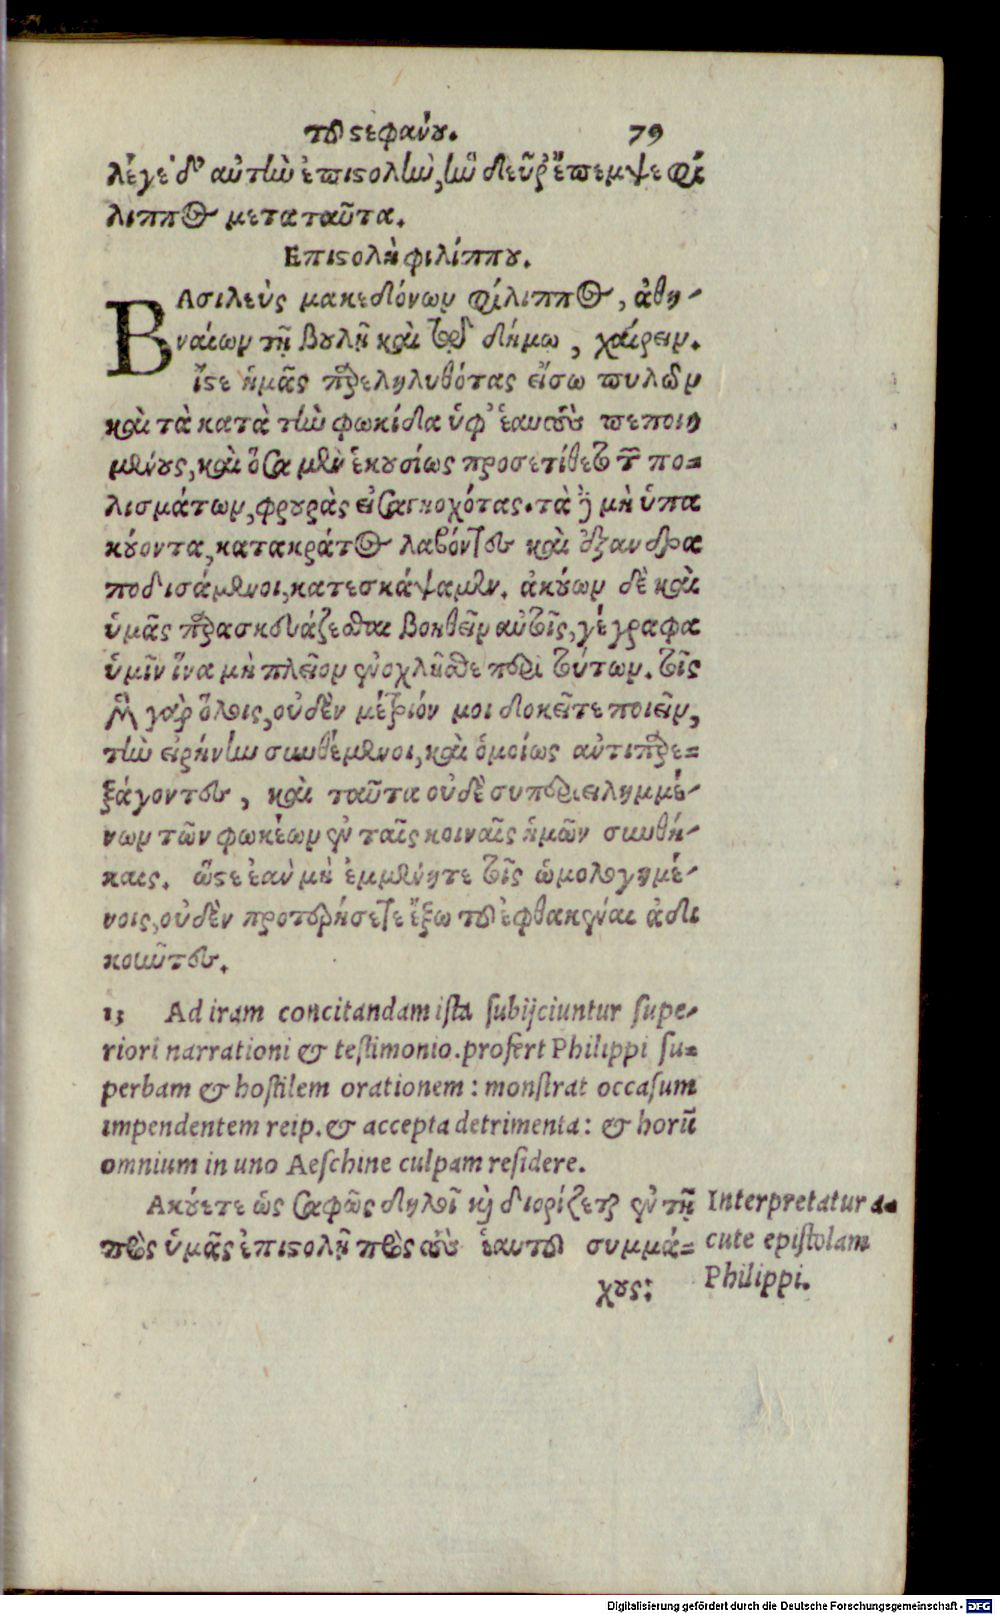 τοῦ στεφάνου. 79
λέγε δ' αὐτὴν ἐπιστολὴν, ἣν δεῦρ' ἔπεμψε φί
λιππος μετα ταῦτα.
Επιστολὴ φιλίππου.
ΒΑσιλεὺς μακεδόνων φίλιππος, ἀθη-
ναίων τῇ βουλῇ καὶ τῷ δήμω, χαίρειν.
ἴστε ἡμᾶς παρεληλυθότας εἴσω πυλῶν
καὶ τὰ κατὰ τὴν φωκίδα ὑφ' ἑαυτοὺς πεποιη
μένους, καὶ ὅσα μὲν ἑκουσίως προσετίθετο τῶν πο=
λισμάτων, φρουρὰς εἰσαγηοχότας. τὰ δὲ μὴ ὑπα
κούοντα, κατακράτος λαβόντες καὶ ἐξανδρα
ποδισάμενοι, κατεσκάψαμεν. ἀκούων δὲ καὶ
ὑμᾶς παρασκευάζεσθαι βοηθεῖν αὐτοῖς, γέγραφα
ὑμῖν ἵνα μὴ πλεῖον ἐνοχλῆσθε περὶ τούτων. τοῖς
μὲν γὰρ ὅλοις, οὐδὲν μέτριόν μοι δοκεῖτε ποιεῖν,
τὴν εἰρήνην συνθέμενοι, καὶ ὁμοίως ἀντιπαρε=
ξάγοντες, καὶ ταῦτα οὐδὲ συμπεριειλημμέ-
νων τῶν φωκέων ἐν ταῖς κοιναῖς ἡμῶν συνθή-
καις. ὥστε ἐὰν μὴ ἐμμένητε τοῖς ὡμολογημέ-
νοις, οὐδὲν προτερήσετε ἔξω τοῦ ἐφθακέναι ἀδι
κοῦντες.
13 Ad iram concitandam ista subijciuntur supe-
riori narrationi & testimonio. profert Philippi su=
perbam & hostilem orationem: monstrat occasum
impendentem reip. & accepta detrimenta: & horū
omnium in uno Aeschine culpam residere.
Ακούετε ὡς σαφῶς δηλοῖ καὶ διορίζεται ἐν τῇ
πρὸς ὑμᾶς ἐπιστολῇ πρὸς τοὺς ἑαυτοῦ συμμά=
χους:
Interpretatur a-
cute epistolam
Philippi.
Digitalisierung gefördert durch die Deutsche Forschungsgemeinschaft - DFG